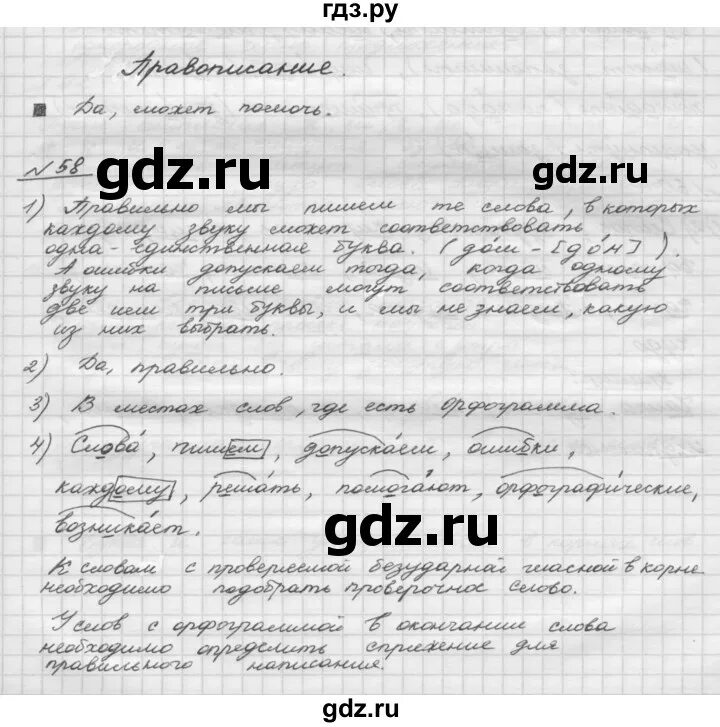 гдз.ру
Правописание.
Да, может помочь.
gdz.ru
gdz.ru
№ 58
1) Правильно мы пишем те слова, в которых
каждому звуку может соответствовать
одна-единственная буква. (до́м - [до́м]).
А ошибки допускаем тогда, когда одному
звуку на письме могут соответствовать
две или три буквы, и мы не знаем, какую
из них выбрать.
2) Да, правильно.
3) В местах слов, где есть орфограмма.
4) Слова́, пишем, допуска́ем, ошибки,
каждому, реша́ть, помога́ют, орфографи́ческие,
возника́ет.
gdz.ru
gdz.ru
К словам с проверяемой безударной гласной в корне
необходимо подобрать проверочное слово.
У слов с орфограммой в окончании слова
необходимо определить спряжение для
правильного написания.
gdz.ru
gdz.ru